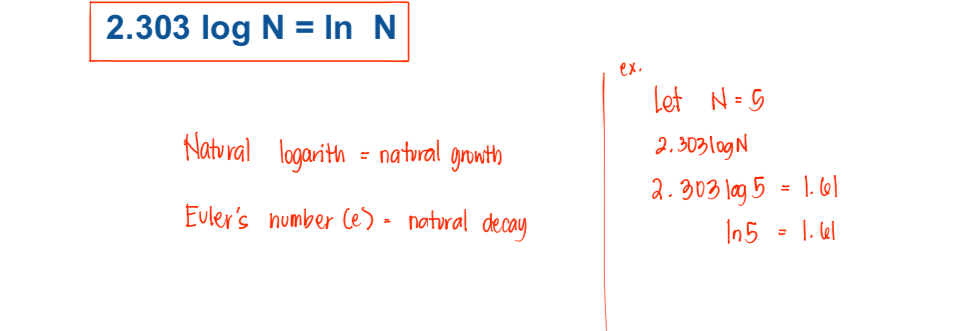 2.303 log N = ln N
Natural logarith = natural growth
Euler's number (e) = natural decay
ex.
Let N = 5
2.303 log N
2.303 log 5 = 1.61
ln 5 = 1.61